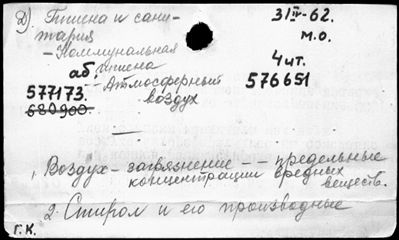 2) Гигиена и сани-
тария
- Коммунальная
гигиена
аб.
- Атмосферный
воздух
577173.
680900.
31 IV-62.
м.о.
4 чт.
576651
1. Воздух - загрязнение - - предельные
концентрации вредных
веществ.
2. Стирол и его производные
Г.К.